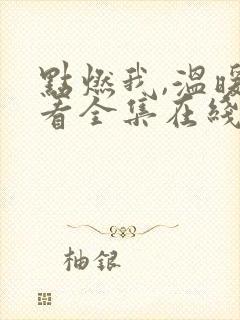 點燃我,溫暖
看全集在綫
柚銀